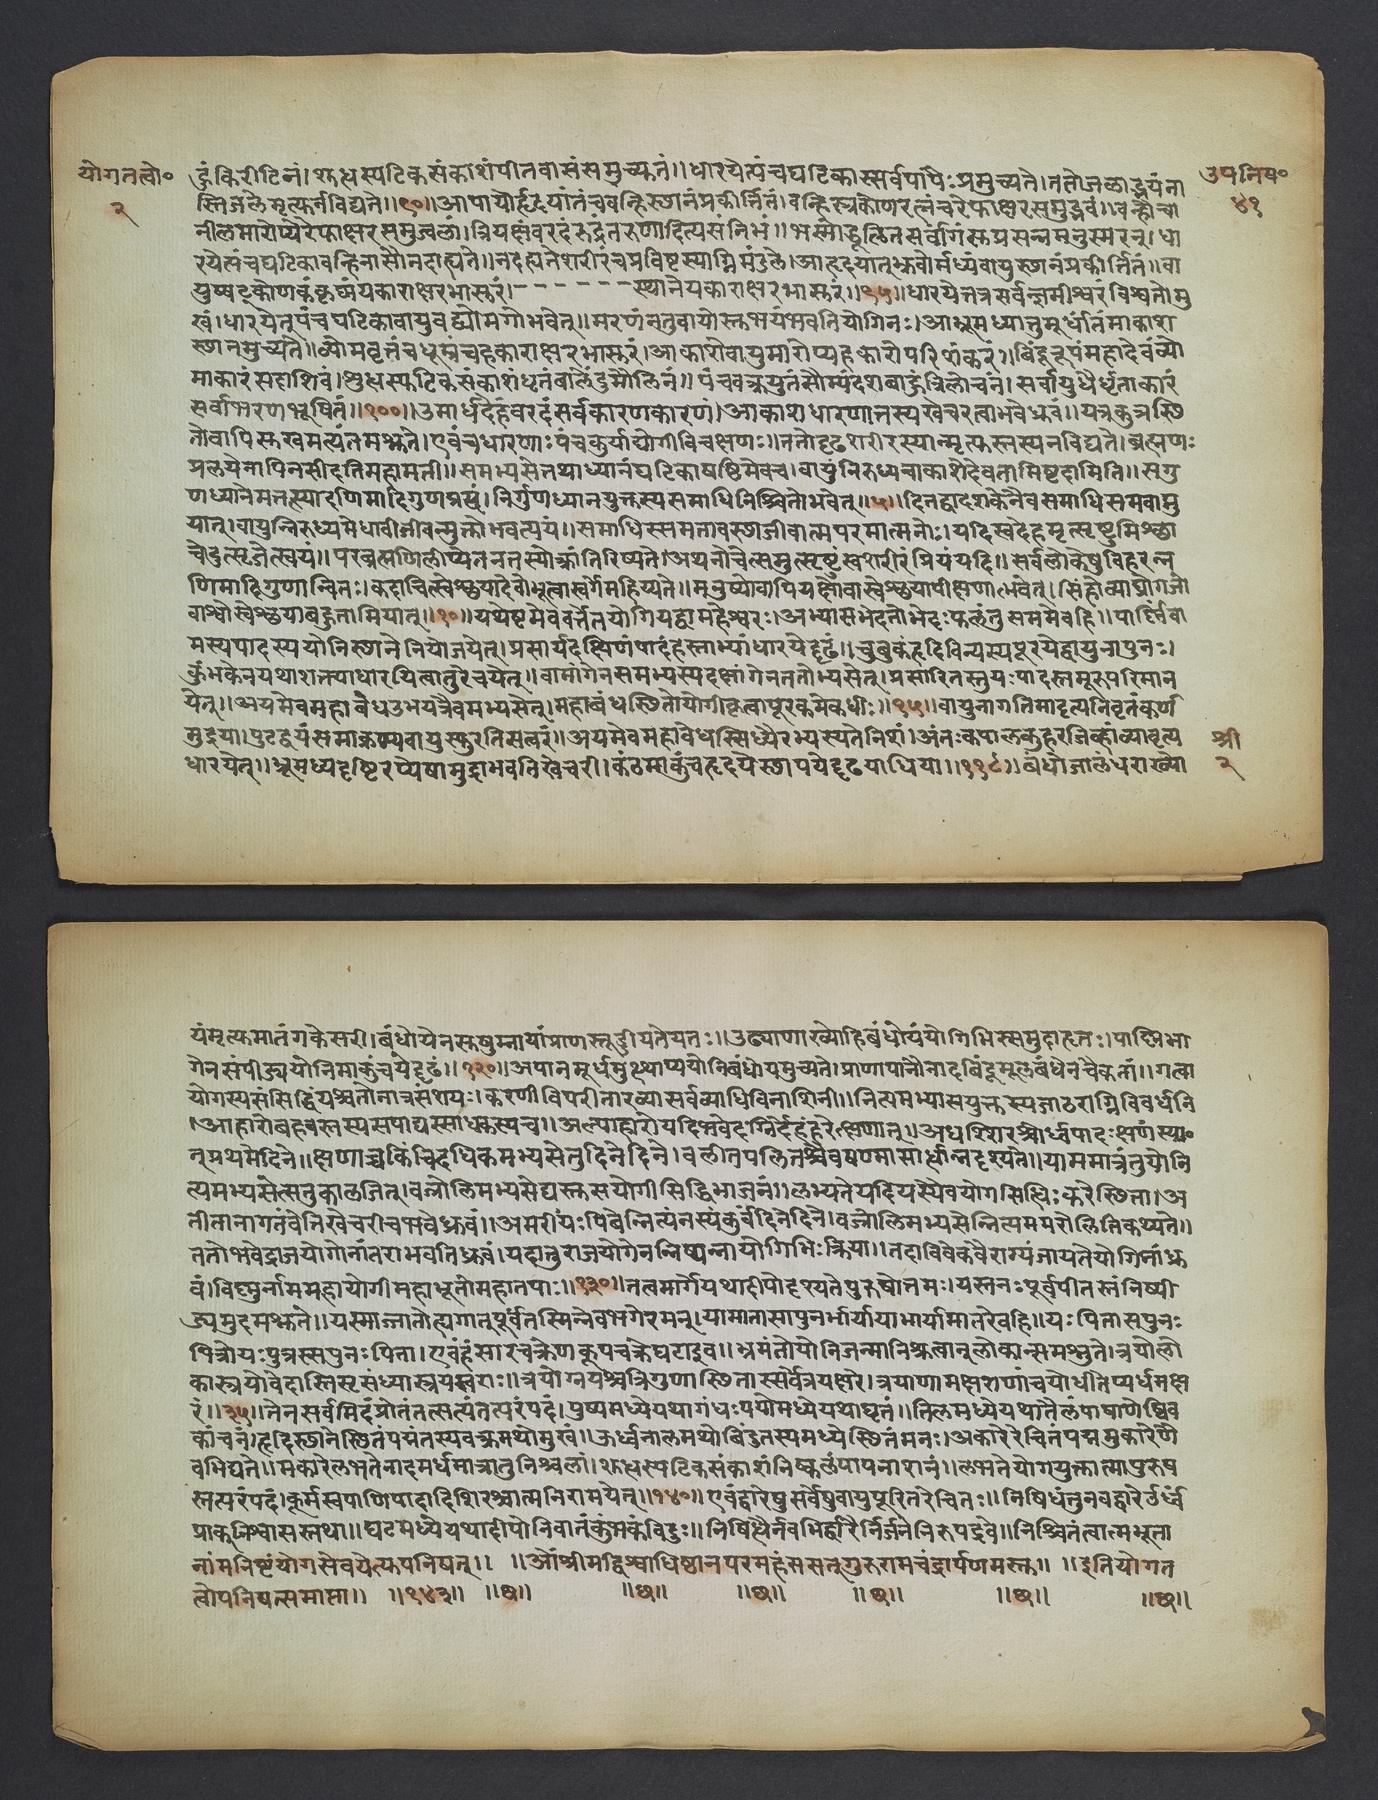 योगतत्वो०
२
उपनिष०
४१
हुं किरीटिनं। शुद्धस्फटिकसंकाशंपीतवाससमुच्युतं॥ धारयेत्पंचघटिकास्सर्वपापैःप्रमुच्यते। ततोजलाद्भयंना
स्तिजलेमृत्युर्नविद्यते॥९०॥ आपायोर्हृदयांतंचवन्हिस्थानंप्रकीर्त्तितं। वन्हिस्त्रिकोणरत्नंचरेफाक्षरसमुद्भवं॥ वन्हौचा
नीलमारोप्यरेफाक्षरसमुज्वलं। त्रियक्षंवरदंरुद्रंतरुणादित्यसंनिभं॥ भस्मोद्धूलितसर्वांगंसुप्रसन्नमनुस्मरन्। धा
रयेत्पंचघटिकावन्हिनासौनदाह्यते॥ नदह्यतेशरीरंचप्रविष्टस्याग्निमंडले। आहृदयात्तुभ्रुवोर्मध्यंवायुस्थानंप्रकीर्त्तितं॥ वा
युष्षट्कोणकंकृष्णंयकाराक्षरभास्वरं। ------स्थानेयकाराक्षरभास्वरं॥९५॥ धारयेत्तत्रसर्वज्ञमीश्वरंविश्वतोमु
खं। धारयेत्पंचघटिकावायुवद्व्योमगोभवेत्॥ मरणंनतुवायोस्तुभयंभवतियोगिनः। आभ्रूमध्यात्तुमूर्धांतमाकाश
स्थानमुच्यते॥ व्योमवृत्तंचधूम्रंचहकाराक्षरभास्वरं। आकाशेवायुमारोप्यहकारोपरिशंकरं॥ बिंदुरूपंमहादेवंव्यो
माकारंसदाशिवं। शुद्धस्फटिकसंकाशंधृतबालेंदुमौलिनं॥ पंचवक्त्रयुतंसौम्यंदशबाहुंत्रिलोचनं। सर्वायुधैर्धृताकारं
सर्वाभरणभूषितं॥१००॥ उमार्धदेहंवरदंसर्वकारणकारणं। आकाशधारणात्तस्यखेचरत्वंभवेध्रुवं॥ यत्रकुत्रस्थि
तोवापिसुखमत्यंतमश्नुते। एवंचधारणाःपंचकुर्याद्योगीविचक्षणः॥ ततोदृढशरीरस्यान्मृत्युस्तस्यनविद्यते। ब्रह्मणः
प्रलयेनापिनसीदतिमहामतिः॥ समभ्यसेत्तथाध्यानंघटिकाषष्टिमेवच। वायुंनिरुध्यचाकाशेदेवतामिष्टदामिति॥ सगु
णध्यानेमेतत्स्यादणिमादिगुणप्रदं। निर्गुणध्यानयुक्तस्यसमाधिनिश्चितोभवेत्॥५॥ दिनद्वादशकेनैवसमाधिंसमवाप्नु
यात्। वायुन्निरुध्यमेधावीजीवन्मुक्तोभवत्ययं॥ समाधिस्समतावस्थाजीवात्मपरमात्मनोः। यदिस्वदेहमृत्सृष्टुमिछा
चेदुत्सृजेत्स्वयं॥ परब्रह्मणिलीप्येतनतस्योत्क्रांतिरिष्यते। अथनोचेत्समुत्सृष्टुंस्वशरीरंप्रियंयदि॥ सर्वलोकेषुविहरन्न
णिमादिगुणान्वितः। कदाचित्स्वेछयादेवोभूत्वास्वर्गेमहिय्यते॥ मनुष्योवापियक्षोवास्वेछयापीक्षणाद्भवेत्। सिंहोव्याघ्रोगजो
वाश्वोस्वेछयाबहुतामियात्॥१०॥ यथेष्टमेववर्त्तेतयोगियद्वामहेश्वरः। अभ्यासभेदतोभेदःफलंतुसममेवहि॥ पार्ष्णिंवा
मस्यपादस्ययोनिस्थानेनियोजयेत्। प्रसार्यदक्षिणंपादंहस्ताभ्यांधारयेदृढं॥ चुबुकंहृदिविन्यस्यपूरयेद्वायुनापुनः।
कुंभकेनयथाशक्त्याधारयित्वातुरेचयेत्॥ वामांगेनसमभ्यस्यदक्षांगेनततोभ्यसेत्। प्रसारितस्तुयःपादस्तमूरूपरिमान
येत्॥ अयमेवमहाबंधउभयत्रैवमभ्यसेत्। महाबंधस्थितोयोगीकृत्वापूरकमेकधीः॥१५॥ वायुनागतिमादृत्यनिवृतंकर्ण
मुद्रया। पुटद्वयंसमाक्रम्यवायुस्फुरतिसत्वरं॥ अयमेवमहावेधस्सिध्यैरभ्यस्यतेनिशं। अंतःकपालकुहरजिव्हांव्यावृत्य
धारयेत्॥ भ्रूमध्यदृष्टिरप्येषामुद्राभवतिखेचरी। कंठमाकुंचहृदयेस्थापयेदृढयाधिया॥११८॥ बंधोजालंधराख्यो
श्री
२
यंमृत्युमातंगकेसरी। बंधोयेनसुषुम्नायांप्राणस्तूड्डीयतेयतः॥ उढ्याणाख्योहिबंधोयंयोगिभिस्समुदाहृतः। पार्ष्णिभा
गेनसंपीड्ययोनिमाकुंचयेदृढं॥१२०॥ अपानमूर्धमुत्थाप्ययोनिबंधोयमुच्यते। प्राणापानौनादबिंदूमूलबंधेनचैकतां॥ गत्वा
योगस्यसंसिद्धिंयश्चतोनात्रसंशयः। करणीविपरीताख्यासर्वव्याधिविनाशिनी॥ नित्यमभ्यासयुक्तस्यजाठराग्निविवर्धनि
। आहारोबहवस्तस्यसंपाद्यस्साधकस्यच॥ अल्पाहारोयदिभवेदग्निर्देहंहरेत्क्षणात्। अधशिरश्चोर्ध्वपादःक्षणंस्या०
त्प्रथमेदिने॥ क्षणाच्चकिंचिदधिकमभ्यसेतुदिनेदिने। वलीतपलितंचैवषण्मासार्धान्नदृश्यते॥ याममात्रंतुयोनि
त्यमभ्यसेत्सतुकालजित्। वज्रोलिमभ्यसेद्यस्तुसयोगीसिद्धिभाजनं॥ लभ्यतेयदियस्यैवयोगसिद्धिःकरेस्थिता। अ
तीतानागतंवेत्तिखेचरीचभवेध्रुवं॥ अमरींयःपिबेन्नित्यंनस्यंकुर्वंदिनेदिने। वज्रोलिमभ्यसेन्नित्यममरोलितिकथ्यते॥
ततोभवेद्राजयोगोनांतराभवतिध्रुवं। यदातुराजयोगेनन्निष्पन्नायोगिभिःक्रिया॥ तदाविवेकवैराग्यंजायतेयोगिनांध्रु
वं। विष्णुर्नाममहायोगीमहाभूतोमहातपाः॥१३०॥ तत्वमार्गेयथादीपोदृश्यतेपुरुषोत्तमः। यस्तनःपूर्वपीतस्तंनिष्पी
ड्यमुदमश्नुते॥ यस्माज्जातोत्पगात्पूर्वंतस्मिन्नेवभगेरमन्। यामातासापुनर्भार्यायाभार्यामातरेवहि॥ यःपितासपुनः
पित्रोयःपुत्रस्सपुनःपिता। एवंहंसारचक्रेणकूपचक्रेघटाइव॥ भ्रमंतोयोनिजन्मानिश्रुत्वानुलोकान्समश्नुते। त्रयोलो
कास्त्रयोवेदास्तिसृसंध्यास्त्रयस्वराः॥ त्रयोग्नयश्चत्रिगुणास्थितास्सर्वेत्रयक्षरे। त्रयाणामक्षराणांचयोधीतेप्यर्धमक्ष
रं॥३५॥ तेनसर्वमिदंप्रोतंतत्सत्यंतत्परंपदं। पुष्पमध्येयथागंधःपयोमध्येयथाघृतं॥ तिलमध्येयथातैलंपाषाणेष्विव
कांचनं। हृदिस्थानेस्थितंपद्मंतस्यवक्त्रमधोमुखं॥ ऊर्ध्वनालमथोबिंदुतस्यमध्येस्थितंमनः। अकारेरेचितंपद्ममुकारेणै
वभिद्यते॥ मकारेलभतेनादमर्धमात्रातुनिश्चला। शुद्धस्फटिकसंकाशंनिष्कलंपापनाशनं॥ लभतेयोगयुक्तात्मापुरुष
स्तत्परंपदं। कूर्मस्वपाणिपादादिशिरश्चात्मनिरामयेत्॥१४०॥ एवंद्वारेषुसर्वेषुवायुपूरितरेचितः॥ निषिधंतुनवद्वारेउर्ध्वं
प्राक्निश्वासस्तथा॥ घटमध्येयथादीपोनिवातंकुंभकंविदुः॥ निषिद्धैर्नवभिर्द्वारैर्निर्जनेनिरुपद्रवे॥ निश्चितंत्वात्मभूता
नांमनिष्टंयोगसेवयेत्युपनिषत्॥ ॥ॐश्रीमद्विश्वाधिष्ठानपरमहंससत्गुरुरामचंद्रार्पणमस्तु॥ ॥इतियोगत
त्वोपनिषत्समाप्ता॥ ॥१४३॥ ॥छ॥ ॥छ॥ ॥छ॥ ॥छ॥ ॥छ॥ ॥छ॥